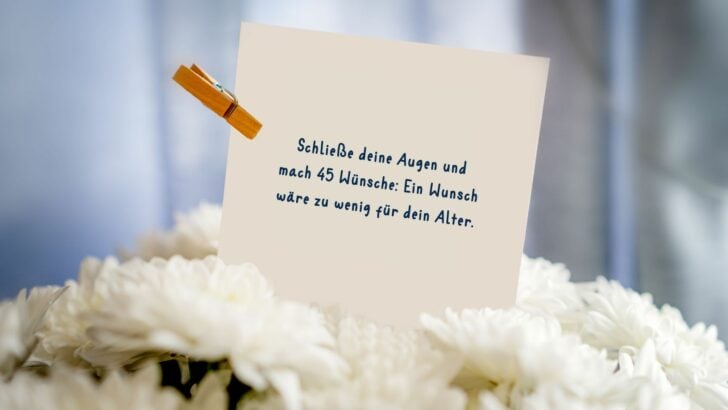 Schließe deine Augen und
mach 45 Wünsche: Ein Wunsch
wäre zu wenig für dein Alter.